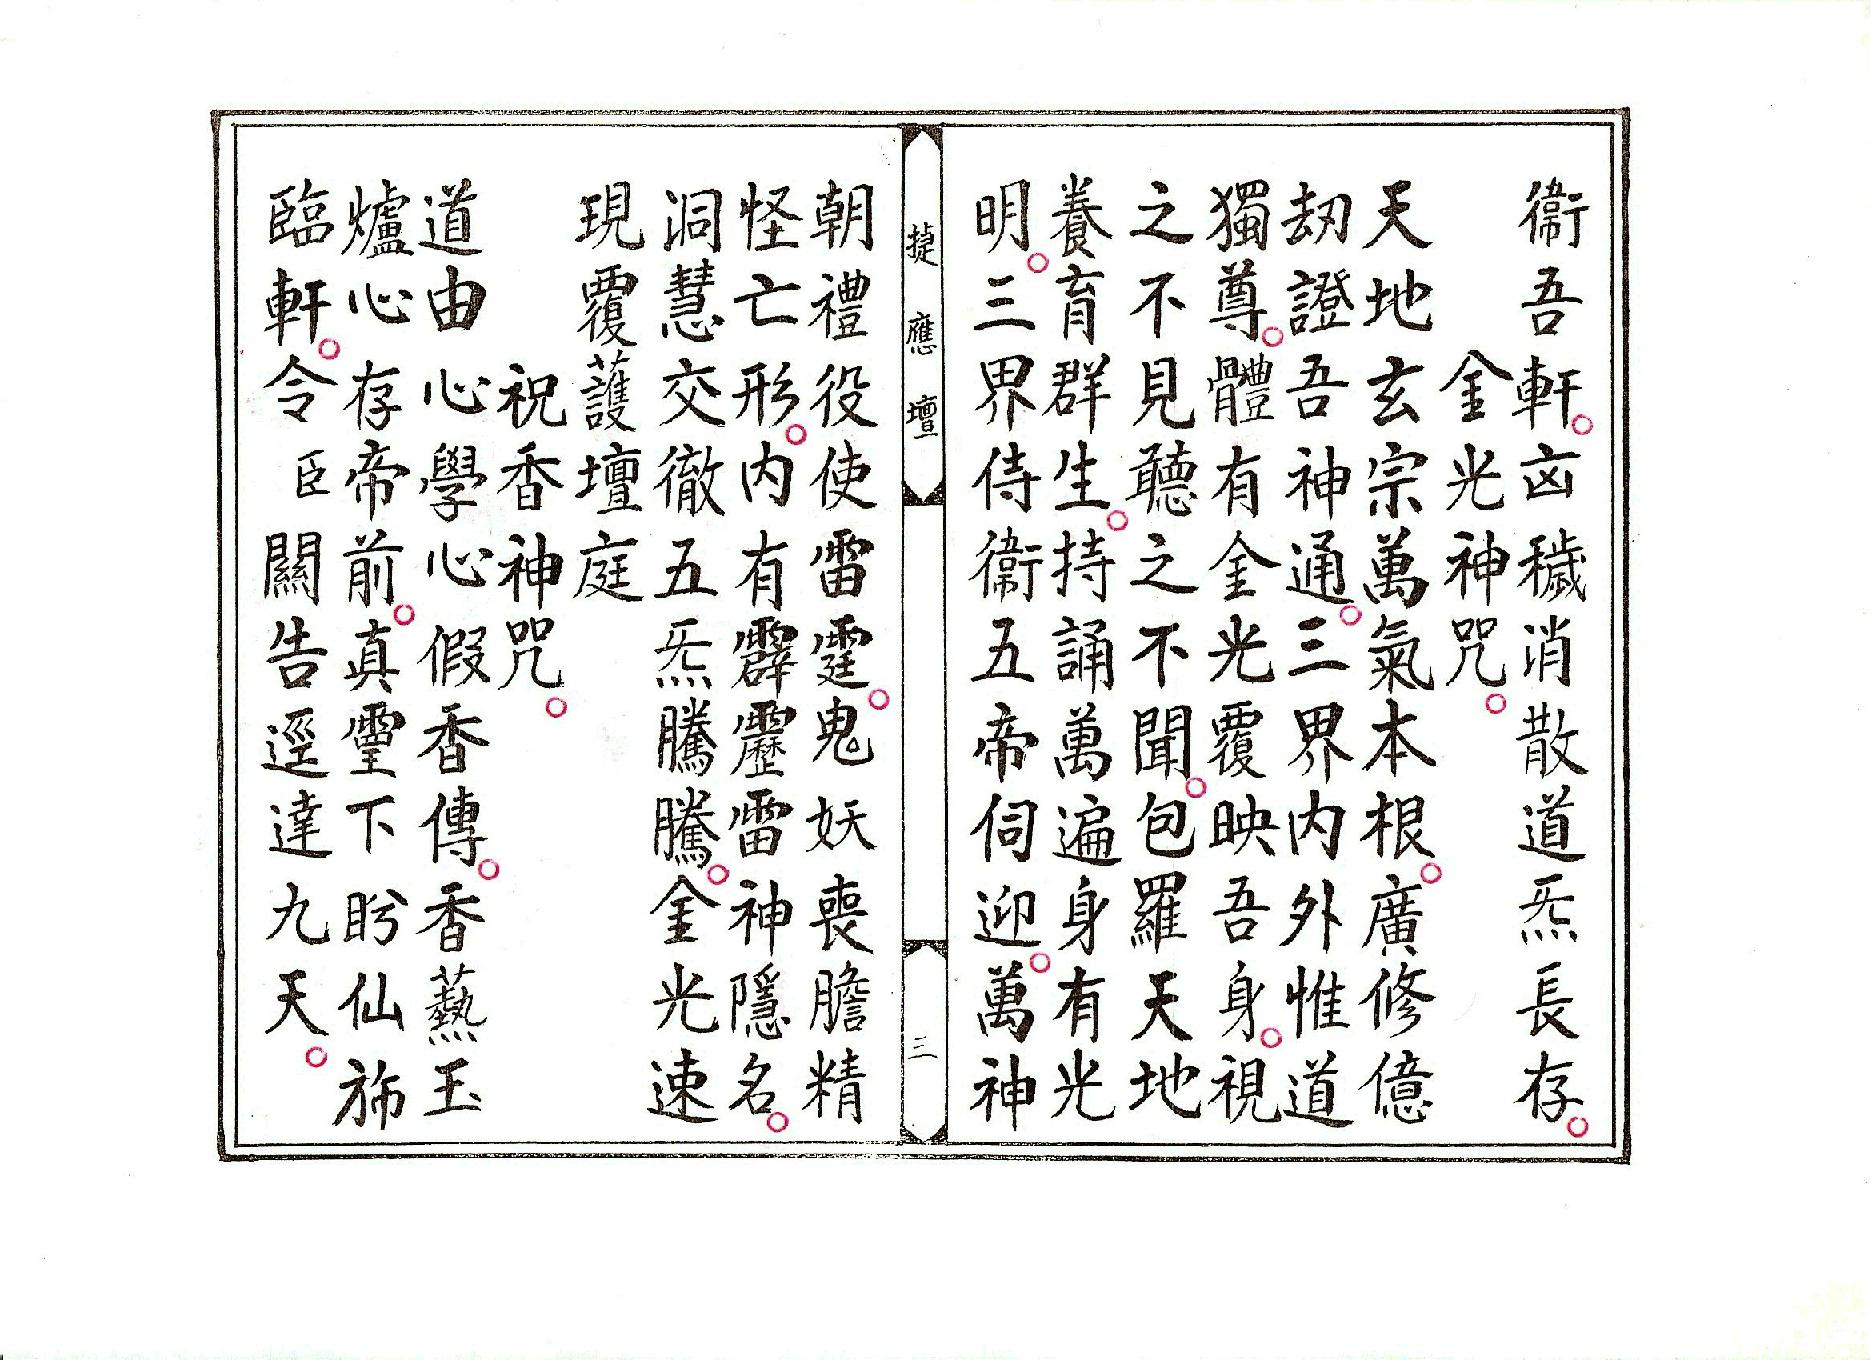 衞吾軒。㐫穢消散道炁長存。
金光神咒。
天地玄宗萬氣本根。廣修億
刧證吾神通。三界内外惟道
獨尊。體有金光覆映吾身。視
之不見聽之不聞。包羅天地
養育群生。持誦萬遍身有光
明。三界侍衞五帝伺迎。萬神
捷應壇
三
朝禮役使雷霆。鬼妖喪膽精
怪亡形。内有霹靂雷神隱名。
洞慧交徹五炁騰騰。金光速
現覆護壇庭
祝香神咒。
道由心學心假香傳。香爇玉
爐心存帝前。真靈下盻仙旆
臨軒。令臣關告逕達九天。